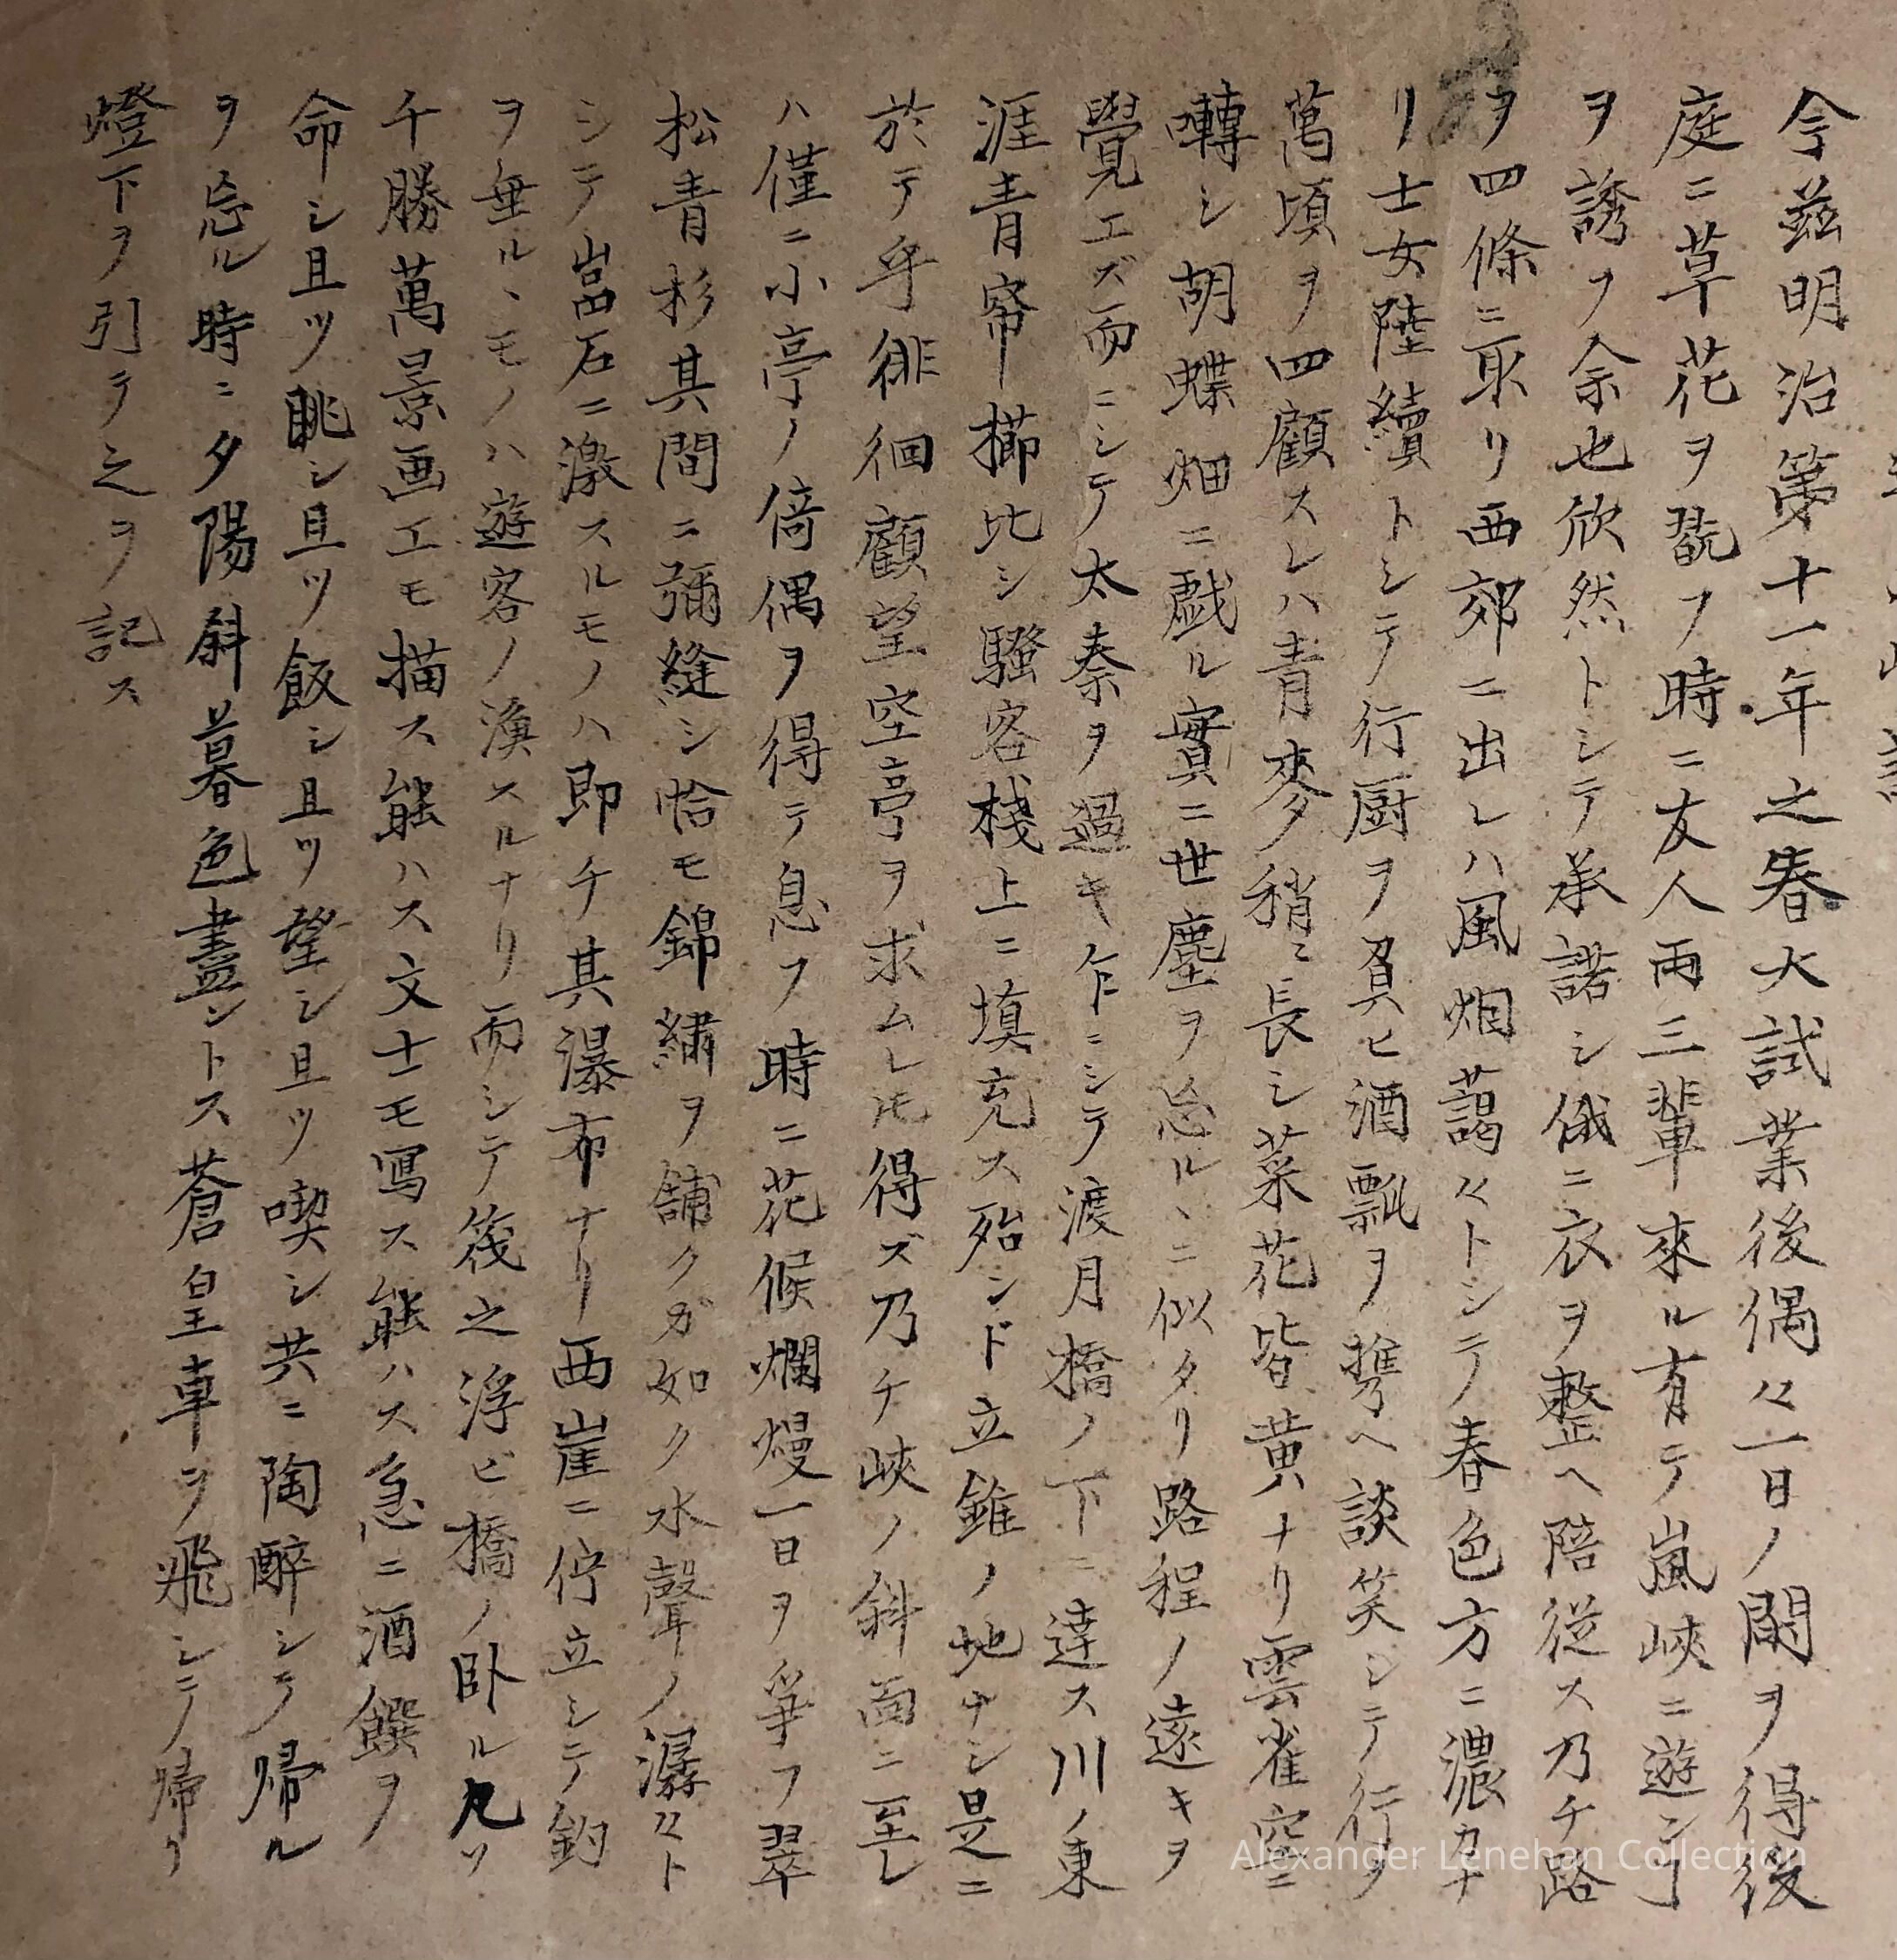 今茲明治第十一年之春大試業後偶々一日ノ閑ヲ得後
庭ニ草花ヲ翫フ時ニ友人両三輩來ル有テ嵐峽ニ遊ンヿ
ヲ誘フ余也欣然トシテ承諾シ俄ニ衣ヲ整ヘ陪従ス乃チ路
ヲ四條ニ取リ西郊ニ出レハ風烟藹々トシテ春色方ニ濃カナ
リ士女陸續トシテ行厨ヲ負ヒ酒瓢ヲ携ヘ談笑シテ行ク
萬頃ヲ四顧スレハ青麥稍々長シ菜花皆黄ナリ雲雀空ニ
囀シ胡蝶畑ニ戯ル實ニ世塵ヲ忘ルヽニ似タリ路程ノ遠キヲ
覺エズ而ニシテ太秦ヲ過キ乍ニシテ渡月橋ノ下ニ達ス川ノ東
涯青帘櫛比シ騒客棧上ニ填充ス殆ンド立錐ノ地ナシ是ニ
於テ乎徘徊顧望空亭ヲ求ムレ𪜈得ズ乃チ峽ノ斜面ニ至レ
ハ僅ニ小亭ノ倚偶ヲ得テ息フ時ニ花候爛熳一日ヲ爭フ翠
松青杉其間ニ彌縫シ恰モ錦繡ヲ舗クガ如ク水聲ノ潺々ト
シテ嵓石ニ激スルモノハ即チ其瀑布ナリ西崖ニ佇立シテ釣
ヲ垂ルヽモノハ遊客ノ漁スルナリ而シテ筏之浮ビ橋ノ臥ル凡ソ
千勝萬景画エモ描ス能ハス文士モ寫ス能ハス急ニ酒饌ヲ
命シ且ツ眺シ且ツ飯シ且ツ望シ且ツ喫シ共ニ陶酔シテ帰ル
ヲ忘ル時ニ夕陽斜暮色盡ントス蒼皇車ヲ飛シテ帰リ
燈下ヲ引テ之ヲ記ス
Alexander Lenehan Collection